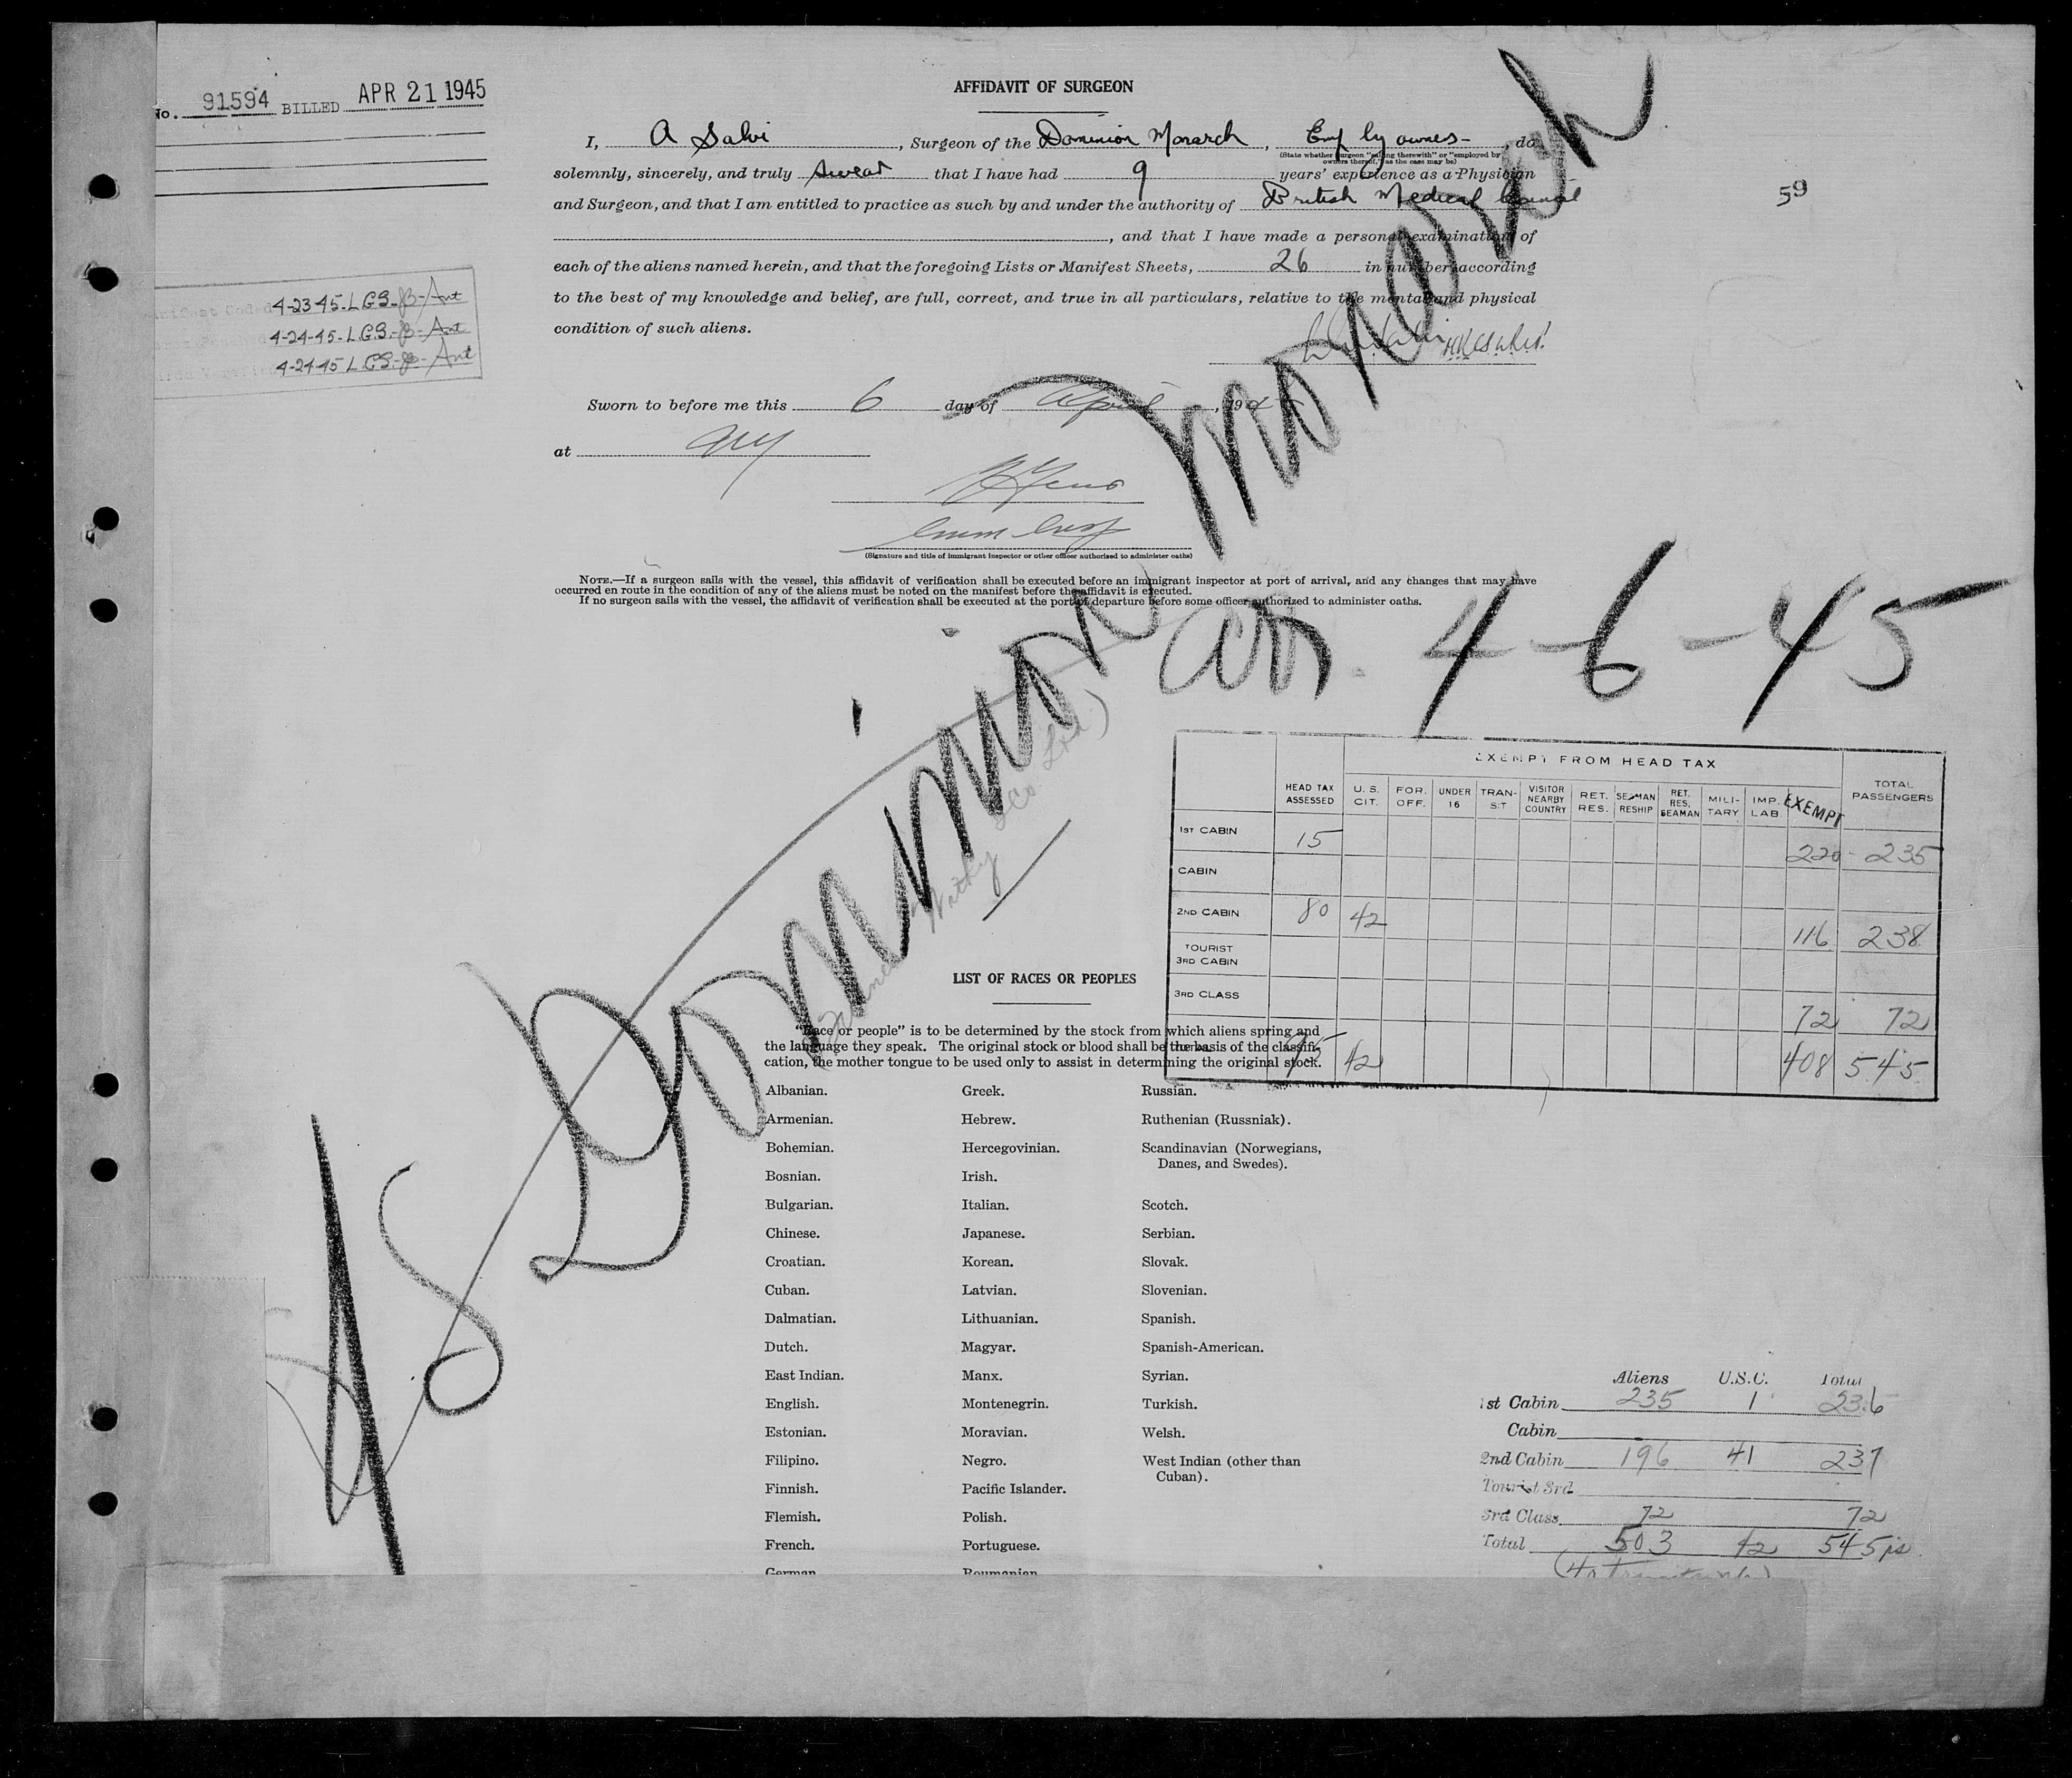 No. 91594 BILLED APR 21 1945
4-23-45-L.G.S.-B-Ant
4-24-45-L.G.S.-B-Ant
4-24-45 L.G.S.-B-Ant
AFFIDAVIT OF SURGEON
I, A Salvi, Surgeon of the Dominion Monarch, Emp by owners, do
(State whether surgeon "sailing therewith" or "employed by
owners thereof," as the case may be)
solemnly, sincerely, and truly swear that I have had 9 years' experience as a Physician
and Surgeon, and that I am entitled to practice as such by and under the authority of British Medical Council
, and that I have made a personal examination of
each of the aliens named herein, and that the foregoing Lists or Manifest Sheets, 26 in number, according
to the best of my knowledge and belief, are full, correct, and true in all particulars, relative to the mental and physical
condition of such aliens.
Sworn to before me this 6 day of April, 194
at NY
(Signature and title of immigrant inspector or other officer authorized to administer oaths)
NOTE.—If a surgeon sails with the vessel, this affidavit of verification shall be executed before an immigrant inspector at port of arrival, and any changes that may have
occurred en route in the condition of any of the aliens must be noted on the manifest before the affidavit is executed.
If no surgeon sails with the vessel, the affidavit of verification shall be executed at the port of departure before some officer authorized to administer oaths.
59
SS Dominion Monarch
arr. 4-6-45
EXEMPT FROM HEAD TAX
HEAD TAX ASSESSED U.S. CIT. FOR. OFF. UNDER 16 TRANSIT VISITOR NEARBY COUNTRY RET. RES. SEAMAN RESHIP RET. RES. SEAMAN MILITARY IMP. LAB EXEMPT TOTAL PASSENGERS
1ST CABIN 15 220 235
CABIN
2ND CABIN 80 42 116 238
TOURIST
3RD CABIN
3RD CLASS 72 72
95 42 408 545
LIST OF RACES OR PEOPLES
"Race or people" is to be determined by the stock from which aliens spring and
the language they speak. The original stock or blood shall be the basis of the classifi-
cation, the mother tongue to be used only to assist in determining the original stock.
Albanian. Greek. Russian.
Armenian. Hebrew. Ruthenian (Russniak).
Bohemian. Hercegovinian. Scandinavian (Norwegians,
Danes, and Swedes).
Bosnian. Irish.
Bulgarian. Italian. Scotch.
Chinese. Japanese. Serbian.
Croatian. Korean. Slovak.
Cuban. Latvian. Slovenian.
Dalmatian. Lithuanian. Spanish.
Dutch. Magyar. Spanish-American.
East Indian. Manx. Syrian.
English. Montenegrin. Turkish.
Estonian. Moravian. Welsh.
Filipino. Negro. West Indian (other than
Cuban).
Finnish. Pacific Islander.
Flemish. Polish.
French. Portuguese.
German Roumanian
Aliens U.S.C. Total
1st Cabin 235 1 236
Cabin
2nd Cabin 196 41 237
Tourist 3rd
3rd Class 72 72
Total 503 42 545